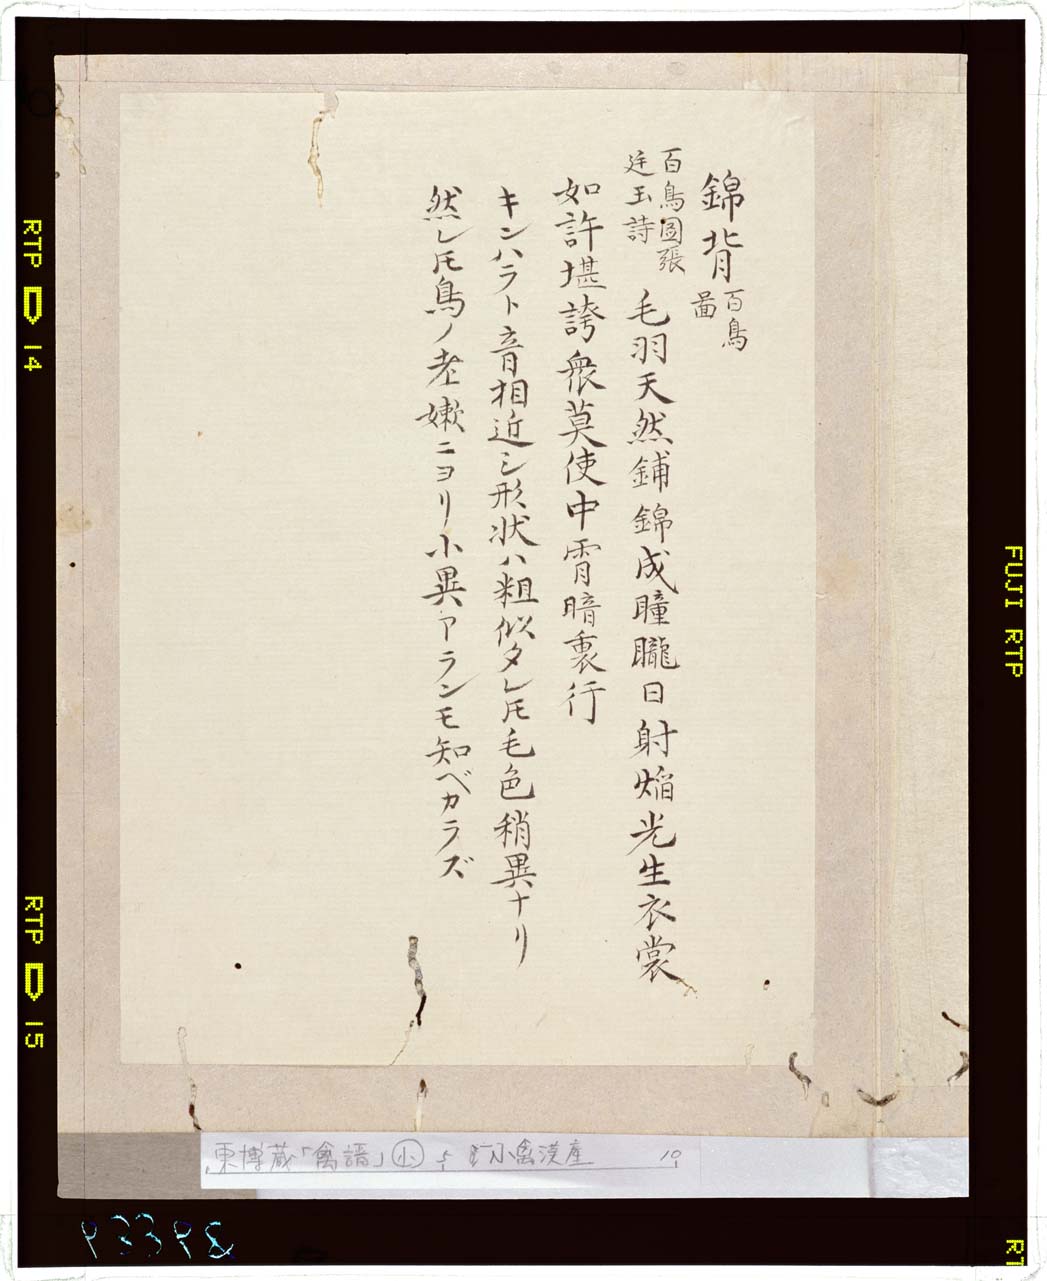 錦背 百鳥
圖
百鳥圖張
廷玉詩
毛羽天然鋪錦成瞳朧日射焔光生衣裳
如許堪誇衆莫使中霄暗裏行
キンハラト音相近シ形状ハ粗似タレ𪜈毛色稍異ナリ
然レ𪜈鳥ノ老嫩ニヨリ小異アランモ知ベカラズ
東博蔵「禽譜」小 小禽漢産 10
RTP 14
RTP 15
FUJI RTP
RT